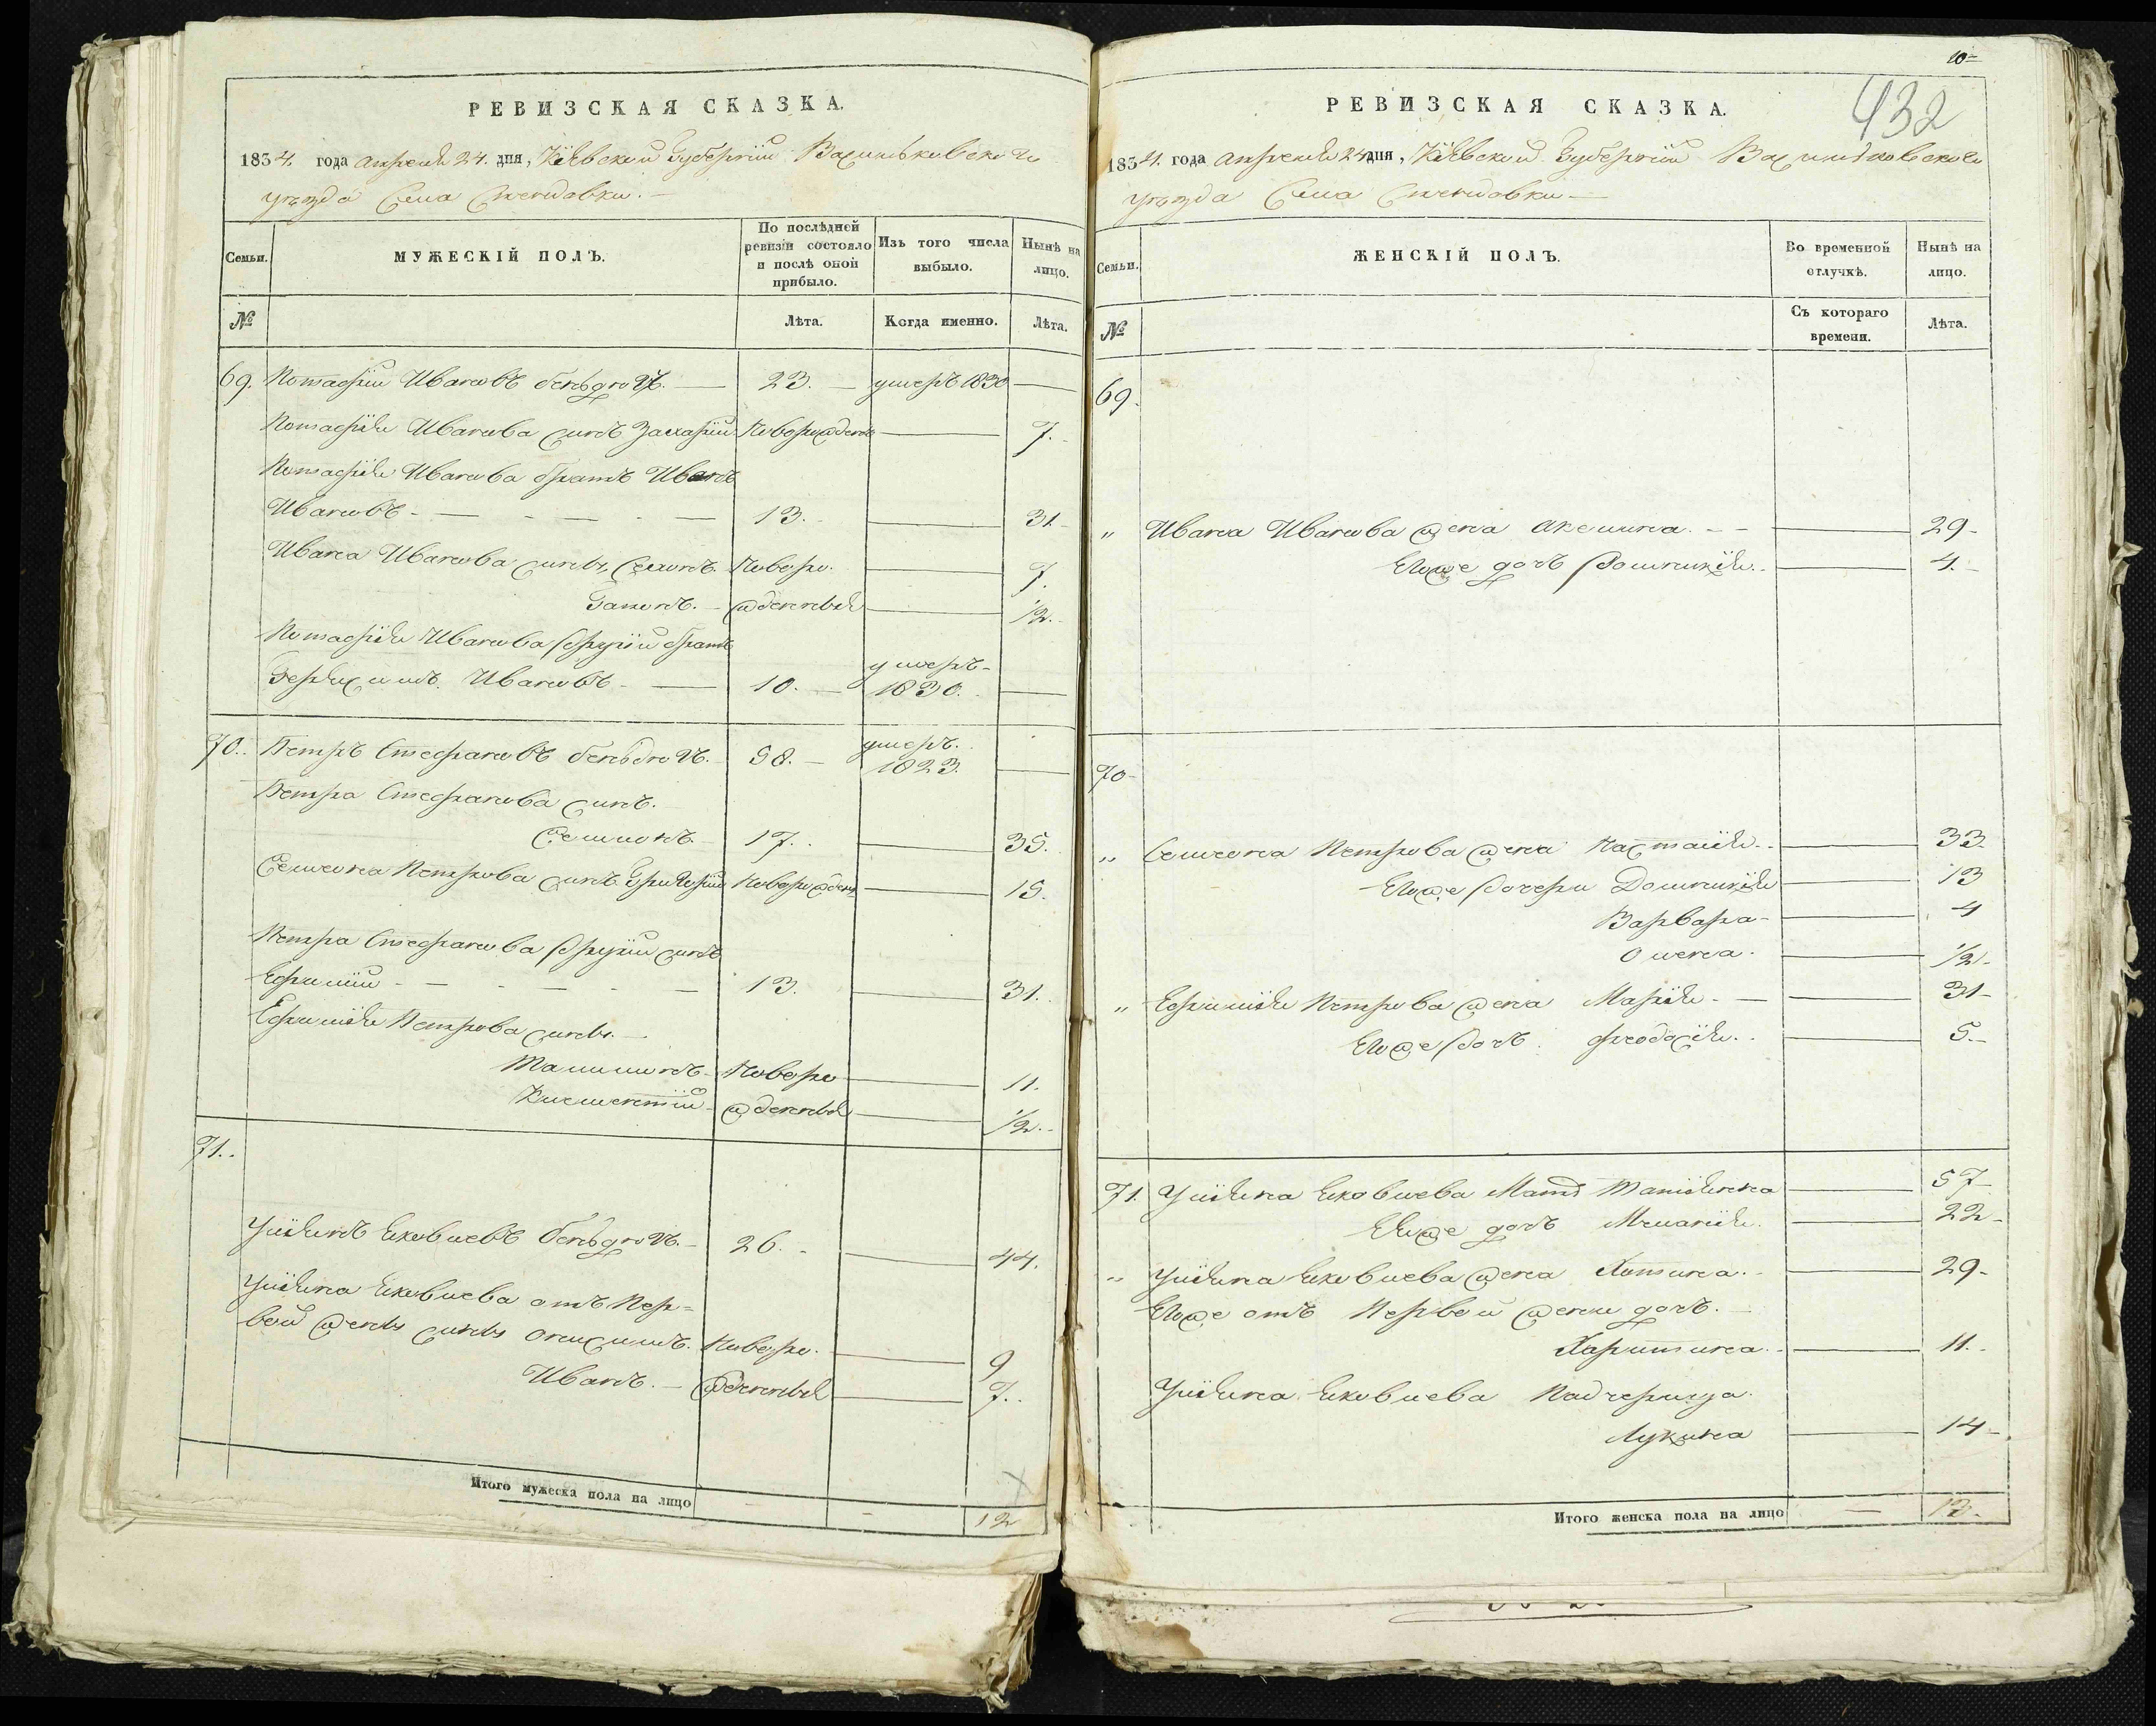 РЕВИЗСКАЯ СКАЗКА.
1834. года апреля 24. дня, Кіевской Губерніи Васильковскаго
уѣзда Села
Семьи.
МУЖЕСКІЙ ПОЛЪ.
По послѣдней ревизіи состояло и послѣ оной прибыло.
Изъ того числа выбыло.
Нынѣ на лицо.
№
Лѣта.
Когда именно.
Лѣта.
69. Потафій Ивановъ 23. умеръ 1830
Потафія Иванова сынъ Захарій. Новорожденъ 7.
Потафія Иванова братъ Иванъ
Ивановъ 13. 31
Ивана Иванова сыны, Семенъ. Новоро. 7.
жденныя 1/2.
Потафія Иванова другій братъ
Герасимъ Ивановъ 10. умеръ 1830.
70. Петръ Стефановъ 58. умеръ. 1823.
Петра Стефанова сынъ.
Семионъ. 17. 35.
Семиона Петрова сынъ Григорій Новорожденъ 15.
Петра Стефанова другій сынъ
Ефимій 13. 31.
Ефимія Петрова сыны.
Новоро 11.
Климентій жденныя 1/2.
71.
Уліянъ Яковлевъ 26. 44.
Уліяна Яковлева отъ пер=
вой жены сыны Онисимъ. Новоро. 9
Иванъ. жденныя 7.
Итого мужеска пола на лицо 12
10
432
РЕВИЗСКАЯ СКАЗКА.
1834. года апреля 24 дня, Кіевской Губерніи Васильковскаго
уѣзда Села
Семьи.
ЖЕНСКІЙ ПОЛЪ.
Во временной отлучкѣ.
Нынѣ на лицо.
№
Съ котораго времени.
Лѣта.
69.
" Ивана Иванова жена Акелина. 29
Егоже дочь Домникія. 4.
70
" Семиона Петрова жена Настасія. 33.
Егоже дочери Домникія 13
Варвара 4
Олена. 1/2
" Ефимія Петрова жена Марія 31
Егоже дочь Феодосія. 5.
71. Уліяна Яковлева Мать Татіяна 57
Еяже дочь Меланія. 22
" Уліяна Яковлева жена Хотина. 29
Егоже отъ первой жены дочь.
Харитина. 11.
Уліяна Яковлева Падчерица
Лукина 14
Итого женска пола на лицо 13.